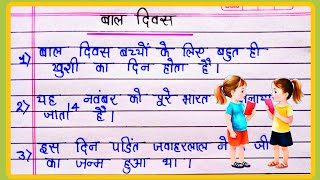 बाल दिवस
1) बाल दिवस बच्चों के लिए बहुत ही
खुशी का दिन होता है।
2) यह 14 नवंबर को पूरे भारत
जाता है।
3) इस दिन पंडित जवाहरलाल ने जी
का जन्म हुआ था।